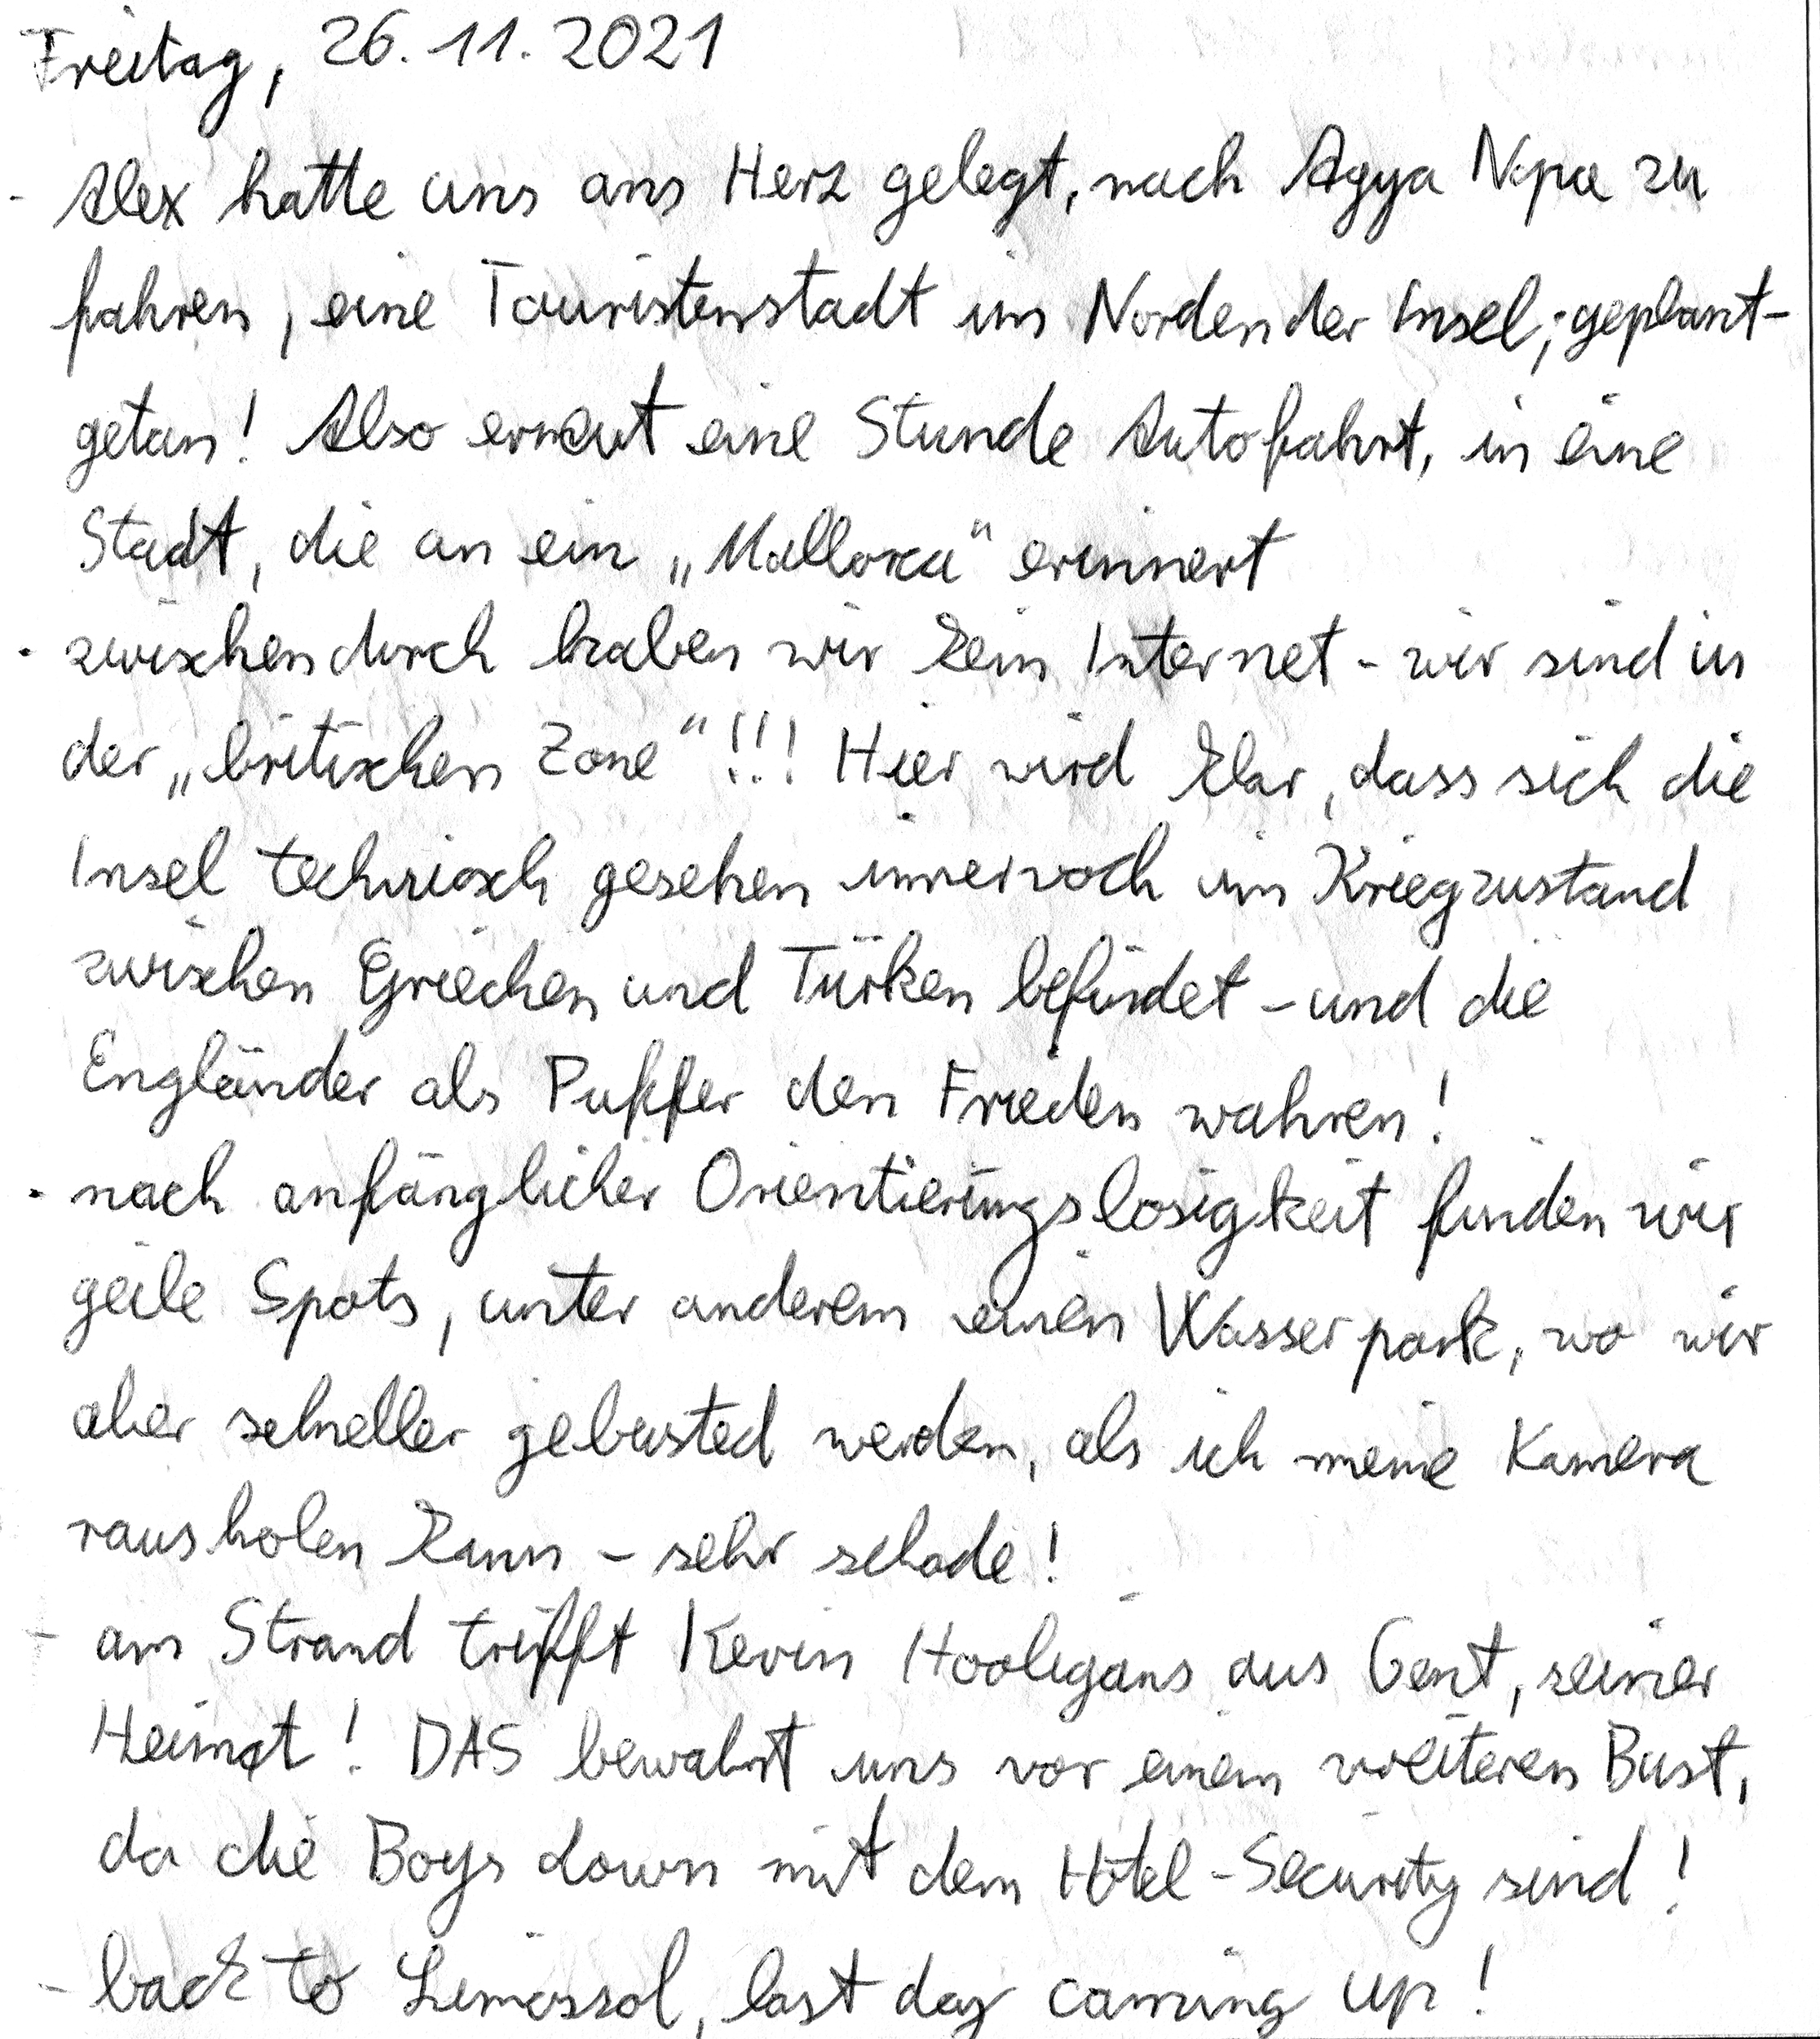 Freitag, 26.11.2021
- Alex hatte uns ans Herz gelegt, nach Agya Napa zu
fahren, eine Touristenstadt im Norden der Insel; geplant-
getan! Also erneut eine Stunde Autofahrt, in eine
Stadt, die an ein „Mallorca“ erinnert
· zwischendurch haben wir kein Internet - wir sind in
der „britischen Zone“!!! Hier wird klar, dass sich die
Insel technisch gesehen immernoch im Kriegzustand
zwischen Griechen und Türken befindet - und die
Engländer als Puffer den Frieden wahren!
· nach anfänglicher Orientierungslosigkeit finden wir
geile Spots, unter anderem einen Wasserpark, wo wir
aber schneller gebusted werden, als ich meine Kamera
rausholen kann - sehr schade!
- am Strand trifft Kevin Hooligans aus Gent, seiner
Heimat! DAS bewahrt uns vor einem weiteren Bust,
da die Boys down mit dem Hotel-Security sind!
- back to Limassol, last day coming up!